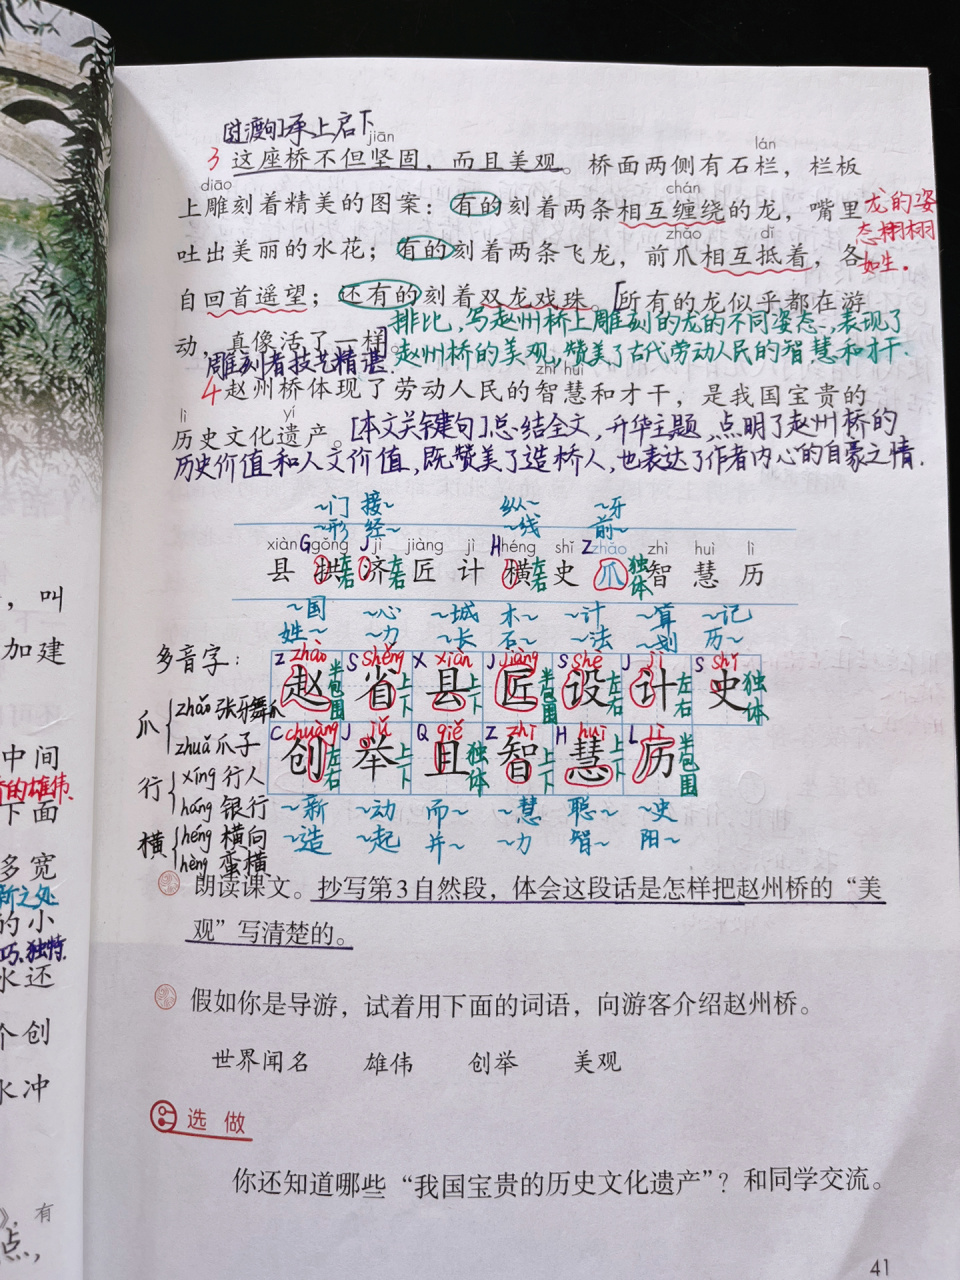 [过渡句]承上启下
jiān lán
3 这座桥不但坚固，而且美观。桥面两侧有石栏，栏板
diāo chán
上雕刻着精美的图案：有的刻着两条相互缠绕的龙，嘴里
龙的姿态栩栩如生.
zhǎo dǐ
吐出美丽的水花；有的刻着两条飞龙，前爪相互抵着，各
自回首遥望；还有的刻着双龙戏珠。[所有的龙似乎都在游
动，真像活了一样]。
排比，写赵州桥上雕刻的龙的不同姿态，表现了
赵州桥的美观，赞美了古代劳动人民的智慧和才干.
雕刻者技艺精湛.
zhì huì
4 赵州桥体现了劳动人民的智慧和才干，是我国宝贵的
lì yí
历史文化遗产。[本文关键句]总结全文，升华主题，点明了赵州桥的
历史价值和人文价值，既赞美了造桥人，也表达了作者内心的自豪之情.
~门 接~ 纵~ ~牙
~形 经~ ~线 前~
xiàn G gǒng J jì jiàng jì H héng shǐ Z zhǎo zhì huì lì
县 拱 左右 济 左右 匠 计 横 左右 史 爪 独体 智 慧 历
~国 ~心 ~城 木~ ~计 ~算 ~记
姓~ ~力 ~长 石~ ~法 ~划 历~
多音字：
Z zhào S shěng X xiàn J jiàng S shè J jì S shǐ
赵 半包围 省 上下 县 上下 匠 半包围 设 左右 计 左右 史 独体
C chuàng J jǔ Q qiě Z zhì H huì L lì
创 左右 举 上下 且 独体 智 上下 慧 上下 历 半包围
~新 ~动 而~ ~慧 聪~ ~史
~造 ~起 并~ ~力 智~ 阳~
爪 zhǎo 张牙舞爪
zhuǎ 爪子
行 xíng 行人
háng 银行
横 héng 横向
hèng 蛮横
朗读课文。抄写第3自然段，体会这段话是怎样把赵州桥的“美
观”写清楚的。
假如你是导游，试着用下面的词语，向游客介绍赵州桥。
世界闻名 雄伟 创举 美观
选做
你还知道哪些“我国宝贵的历史文化遗产”？和同学交流。
41
，叫
加建
中间
的雄伟.
下面
多宽
新之处
的小
巧、独特.
水还
个创
水冲
》，有
点，